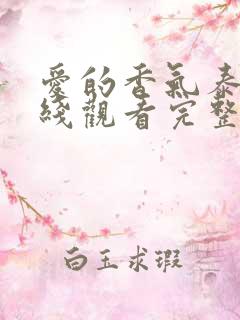 愛的香氣泰
綫觀看完整
白玉求瑕